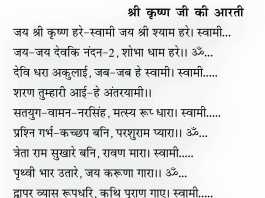 श्री कृष्ण जी की आरती
जय श्री कृष्ण हरे-स्वामी जय श्री श्याम हरे। स्वामी...
जय-जय देवकि नंदन-2, शोभा धाम हरे।। ॐ...
देवि धरा अकुलाई, जब-जब हे स्वामी। स्वामी.....
शरण तुम्हारी आई-हे अंतरयामी।।
सतयुग-वामन-नरसिंह, मत्स्य रूप धारा। स्वामी.....
प्रश्नि गर्भ-कच्छप बनि, परशुराम प्यारा।। ॐ...
त्रेता राम सुखारे बनि, रावण मारा। स्वामी.....
पृथ्वी भार उतारे, जय करूणा गारा।। ॐ...
द्वापर व्यास रूपधरि, कथि पुराण गाए। स्वामी.....